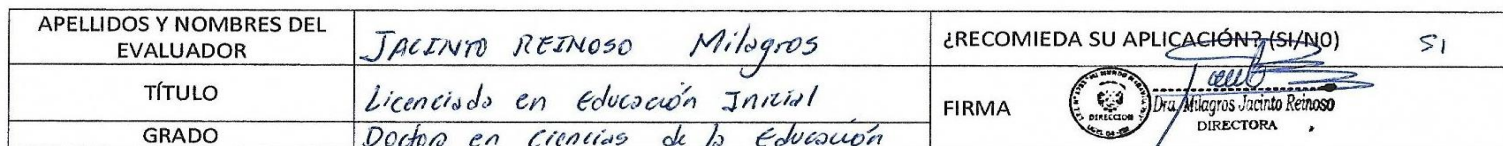 APELLIDOS Y NOMBRES DEL EVALUADOR
JACINTO REINOSO Milagros
¿RECOMIEDA SU APLICACIÓN? (SI/NO) SI
TÍTULO
Licenciado en Educación Inicial
FIRMA
DIRECCION
Dra. Milagros Jacinto Reinoso
DIRECTORA
GRADO
Doctora en Ciencias de la Educación